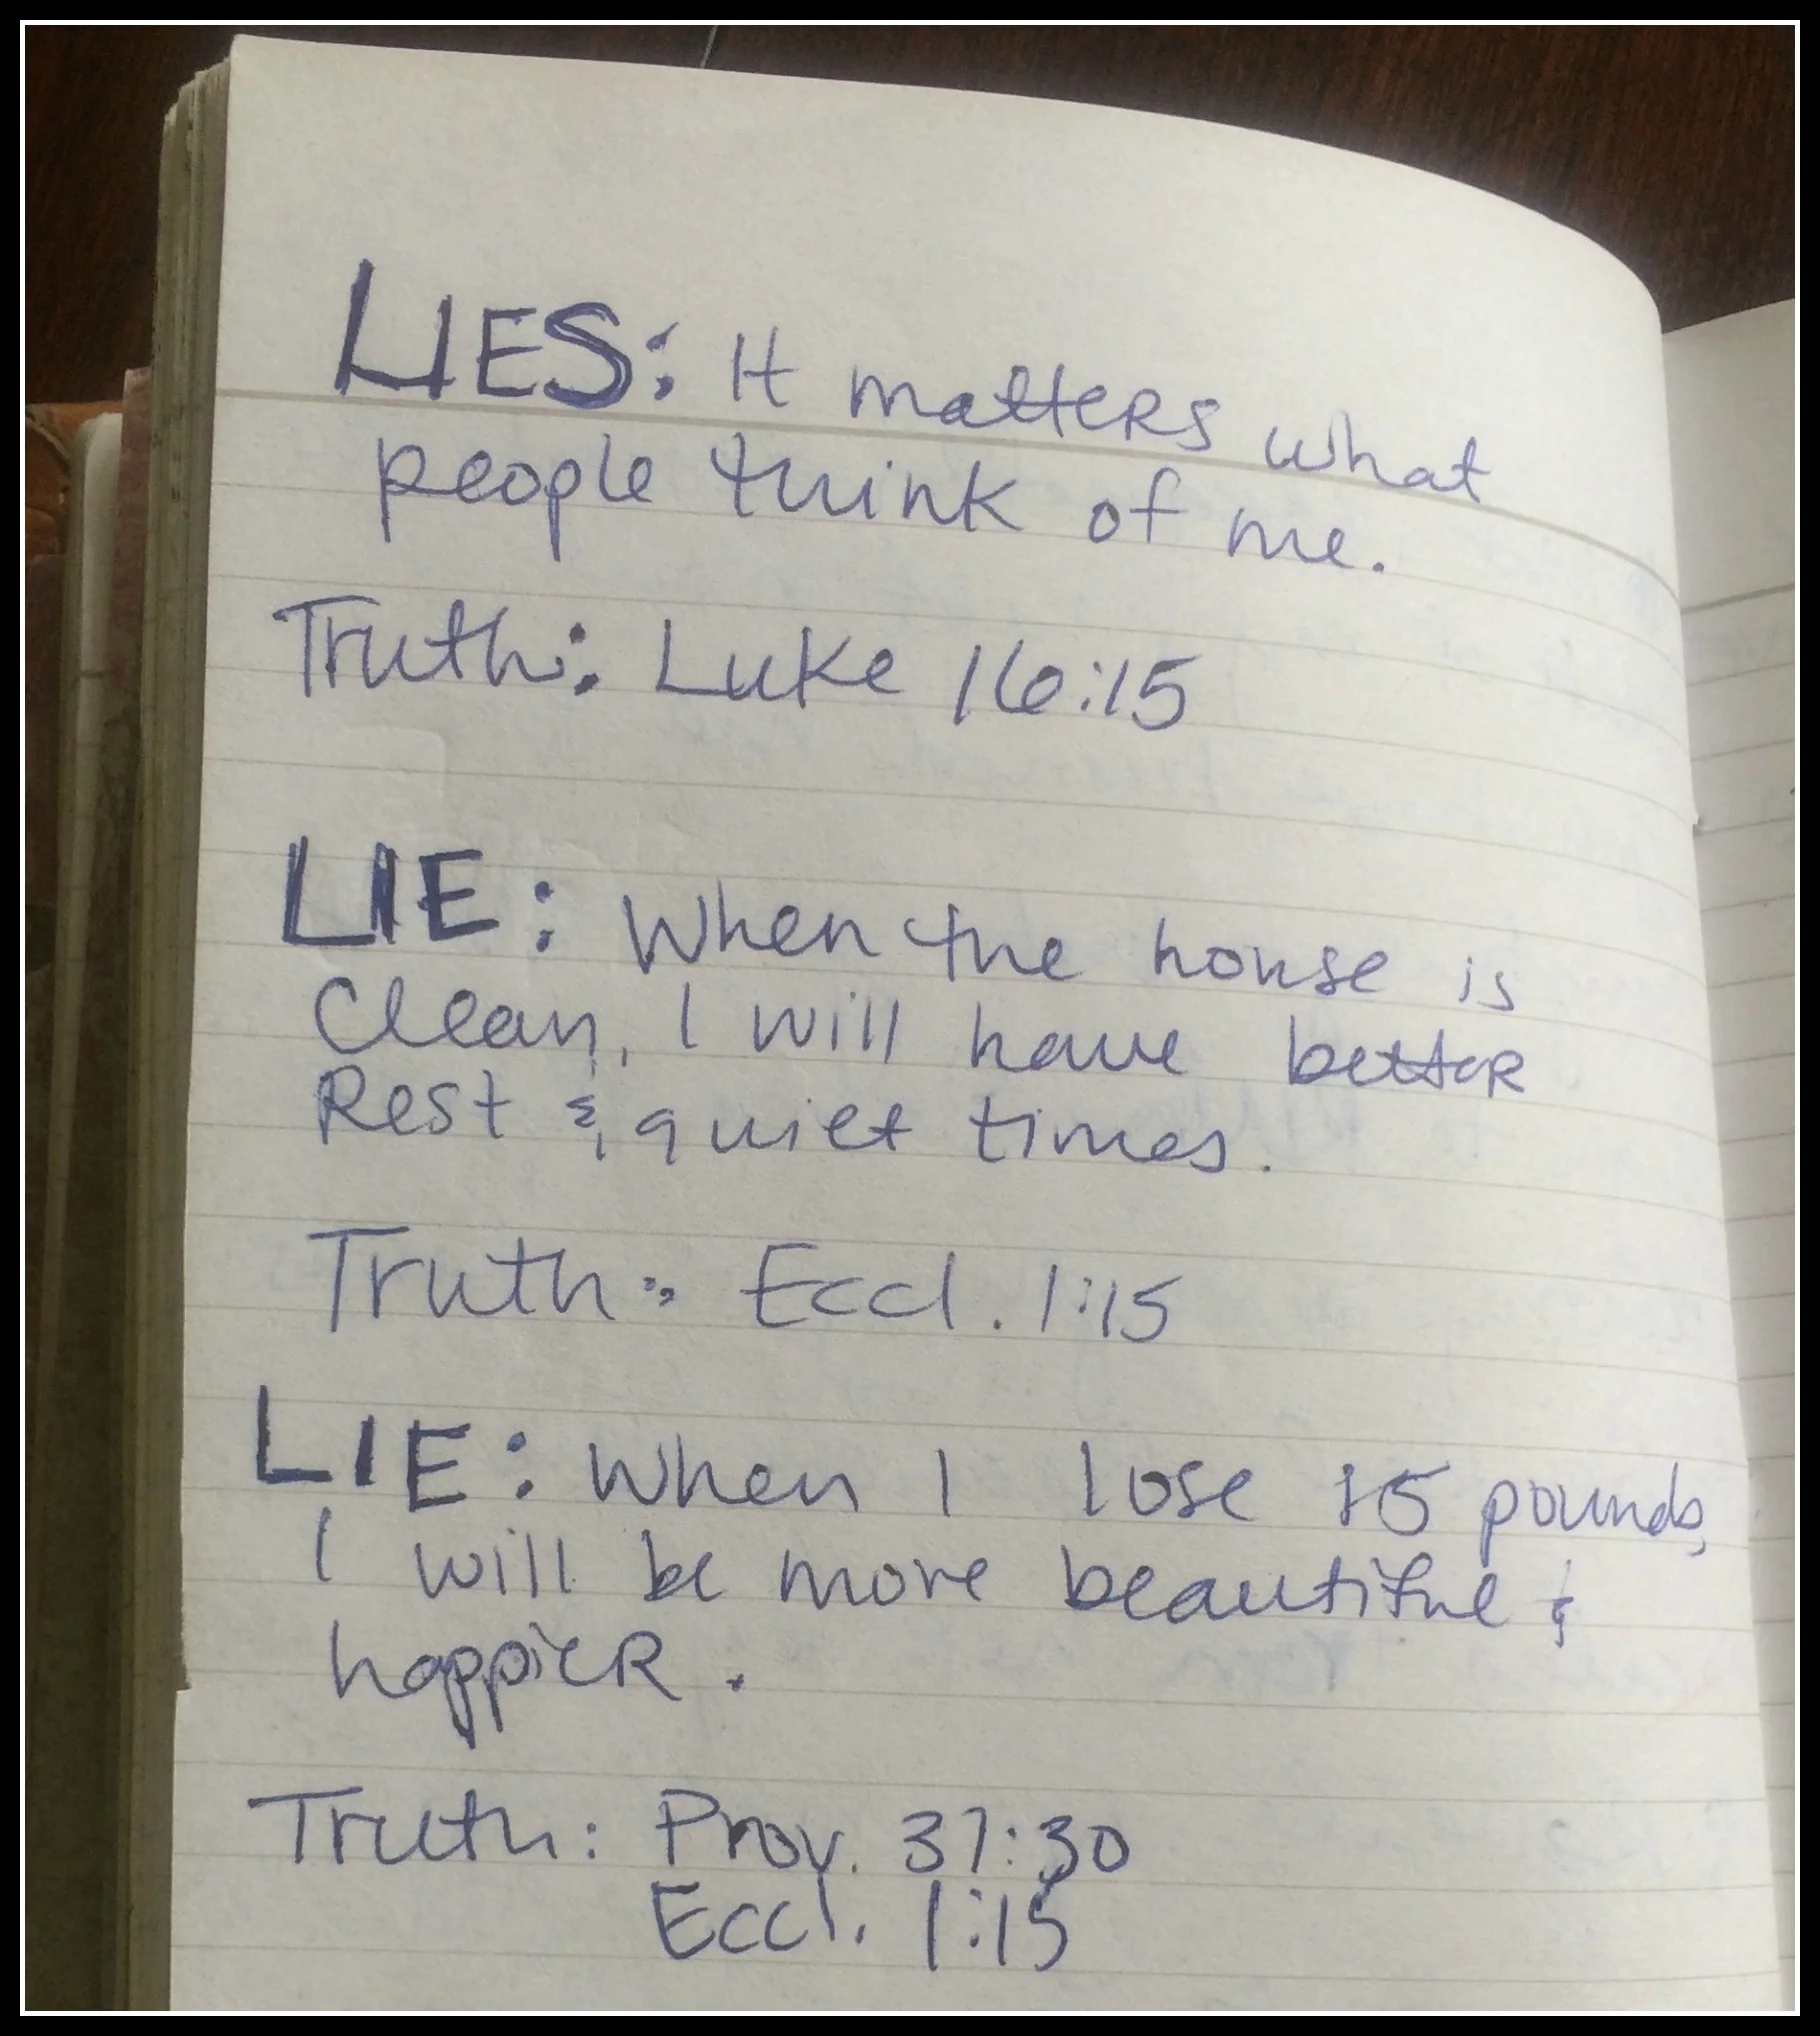 LIES: It matters what
people think of me.
Truth: Luke 16:15
LIE: When the house is
Clean, I will have better
Rest & quiet times.
Truth: Eccl. 1:15
LIE: When I lose 15 pounds,
I will be more beautiful &
happier.
Truth: Prov. 31:30
Eccl. 1:15